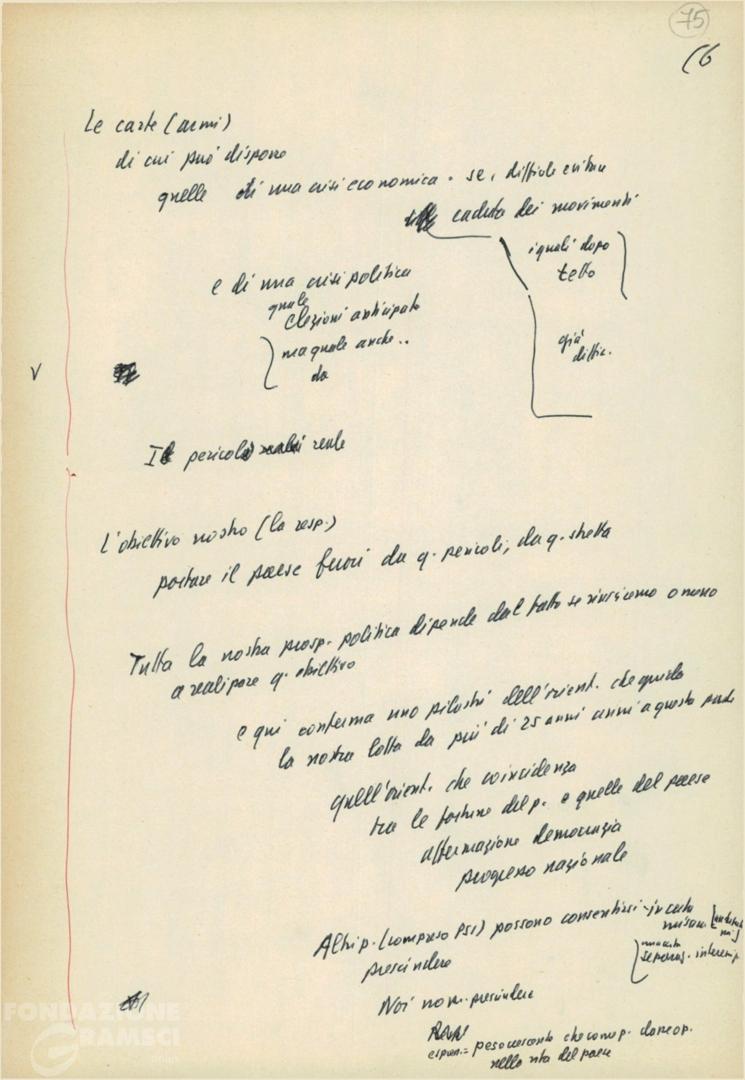 75
(6
Le carte (armi)
di cui può disporre
quelle di una crisi economica. se, difficile evitare
caduta dei movimenti
i quali dopo
tetto
e di una crisi politica
quale
Elezioni anticipate
ma quale anche..
da
già
diffic.
V
Il pericolo reale
L'obiettivo nostro (la resp.)
portare il paese fuori da q. pericoli, da q. stretta
Tutta la nostra prosp. politica dipende dal fatto se riusciremo o meno
a realizzare q. obiettivo
e qui conferma uno pilastri dell'orient. che guida
la nostra lotta da più di 25 anni anni a questa parte
quell'orient. che coincidenza
tra le fortune del p. e quelle del paese
affermazione democrazia
progresso nazionale
Altri p. (compreso PSI) possono consentirsi - in certa
misura
prescindere
Noi non prescindere
espan. = peso crescente che come p. dare op.
nella vita del paese
FONDAZIONE
GRAMSCI